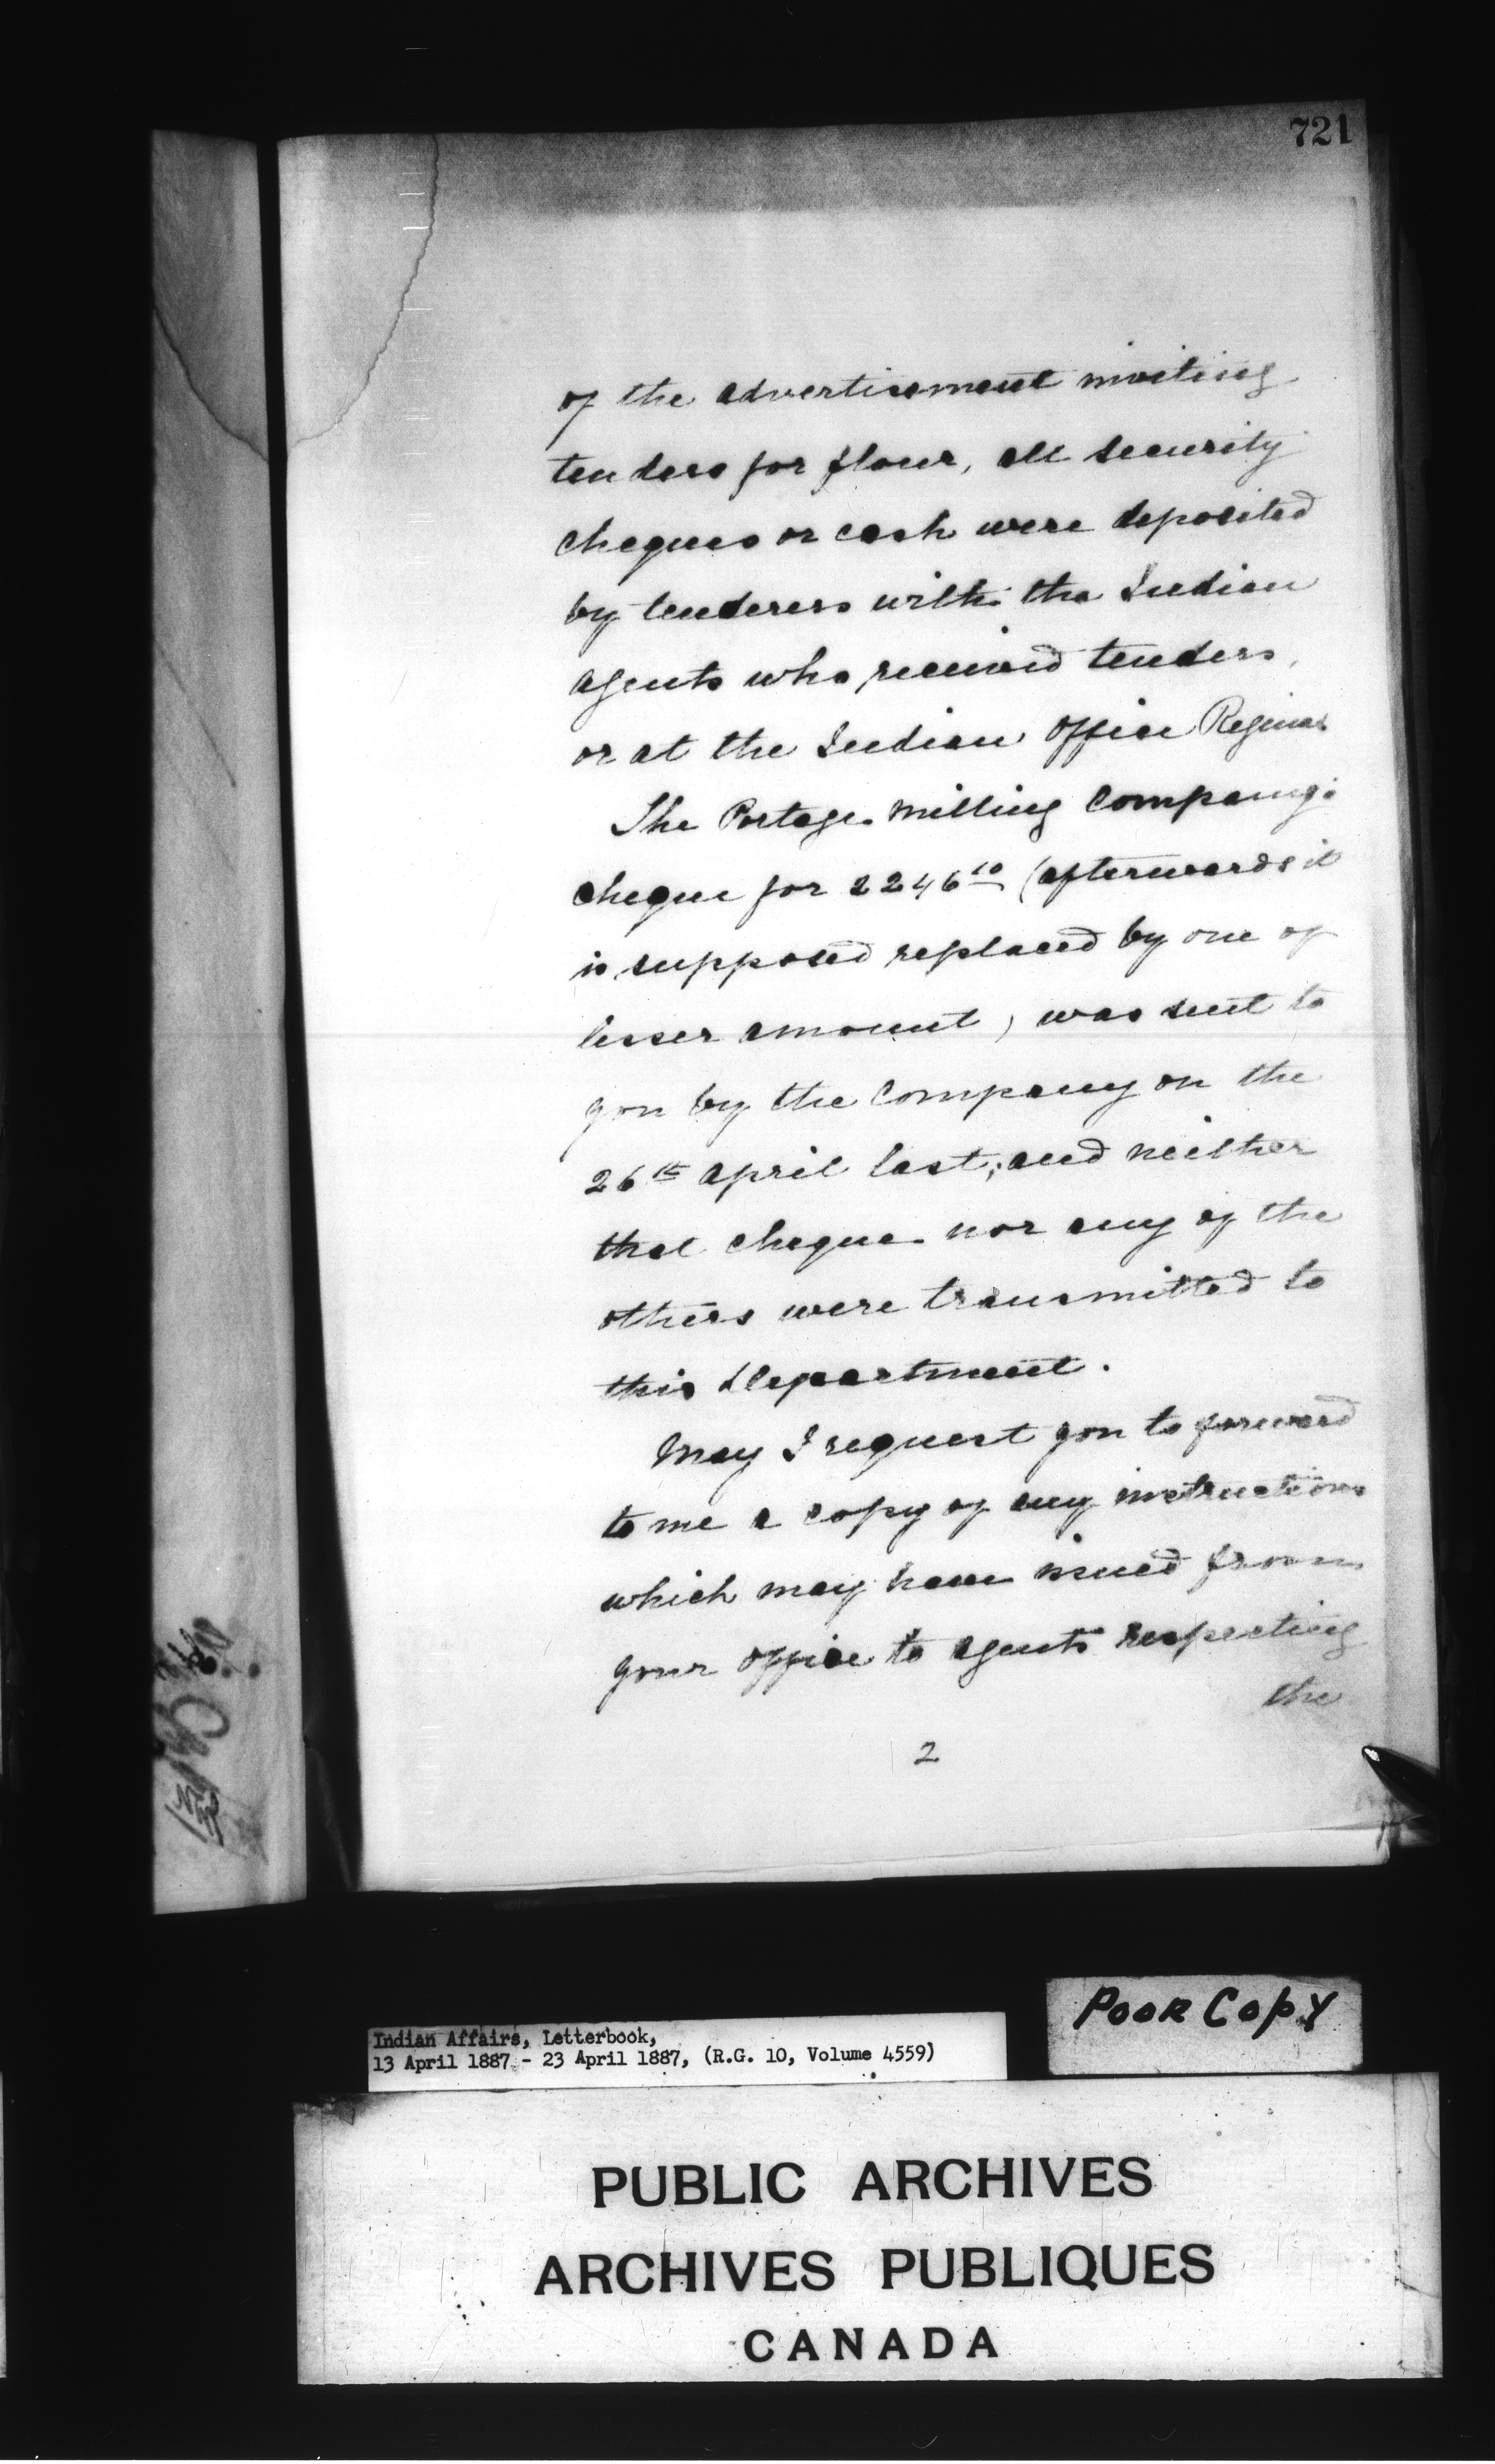 721
of the advertisement inviting
tenders for flour, all security
cheques or cash were deposited
by tenderers with the Indian
agents who received tenders,
or at the Indian Office Regina.
The Portage Milling Company's
cheque for 2246 10 (afterwards it
is supposed replaced by one of
lesser amount) was sent to
you by the Company on the
26th April last; and neither
that cheque nor any of the
others were transmitted to
this Department.
May I request you to forward
to me a copy of any instructions
which may have issued from
your office to agents respecting
the
2
Poor Copy
Indian Affairs, Letterbook,
13 April 1887 - 23 April 1887, (R.G. 10, Volume 4559)
PUBLIC ARCHIVES
ARCHIVES PUBLIQUES
CANADA